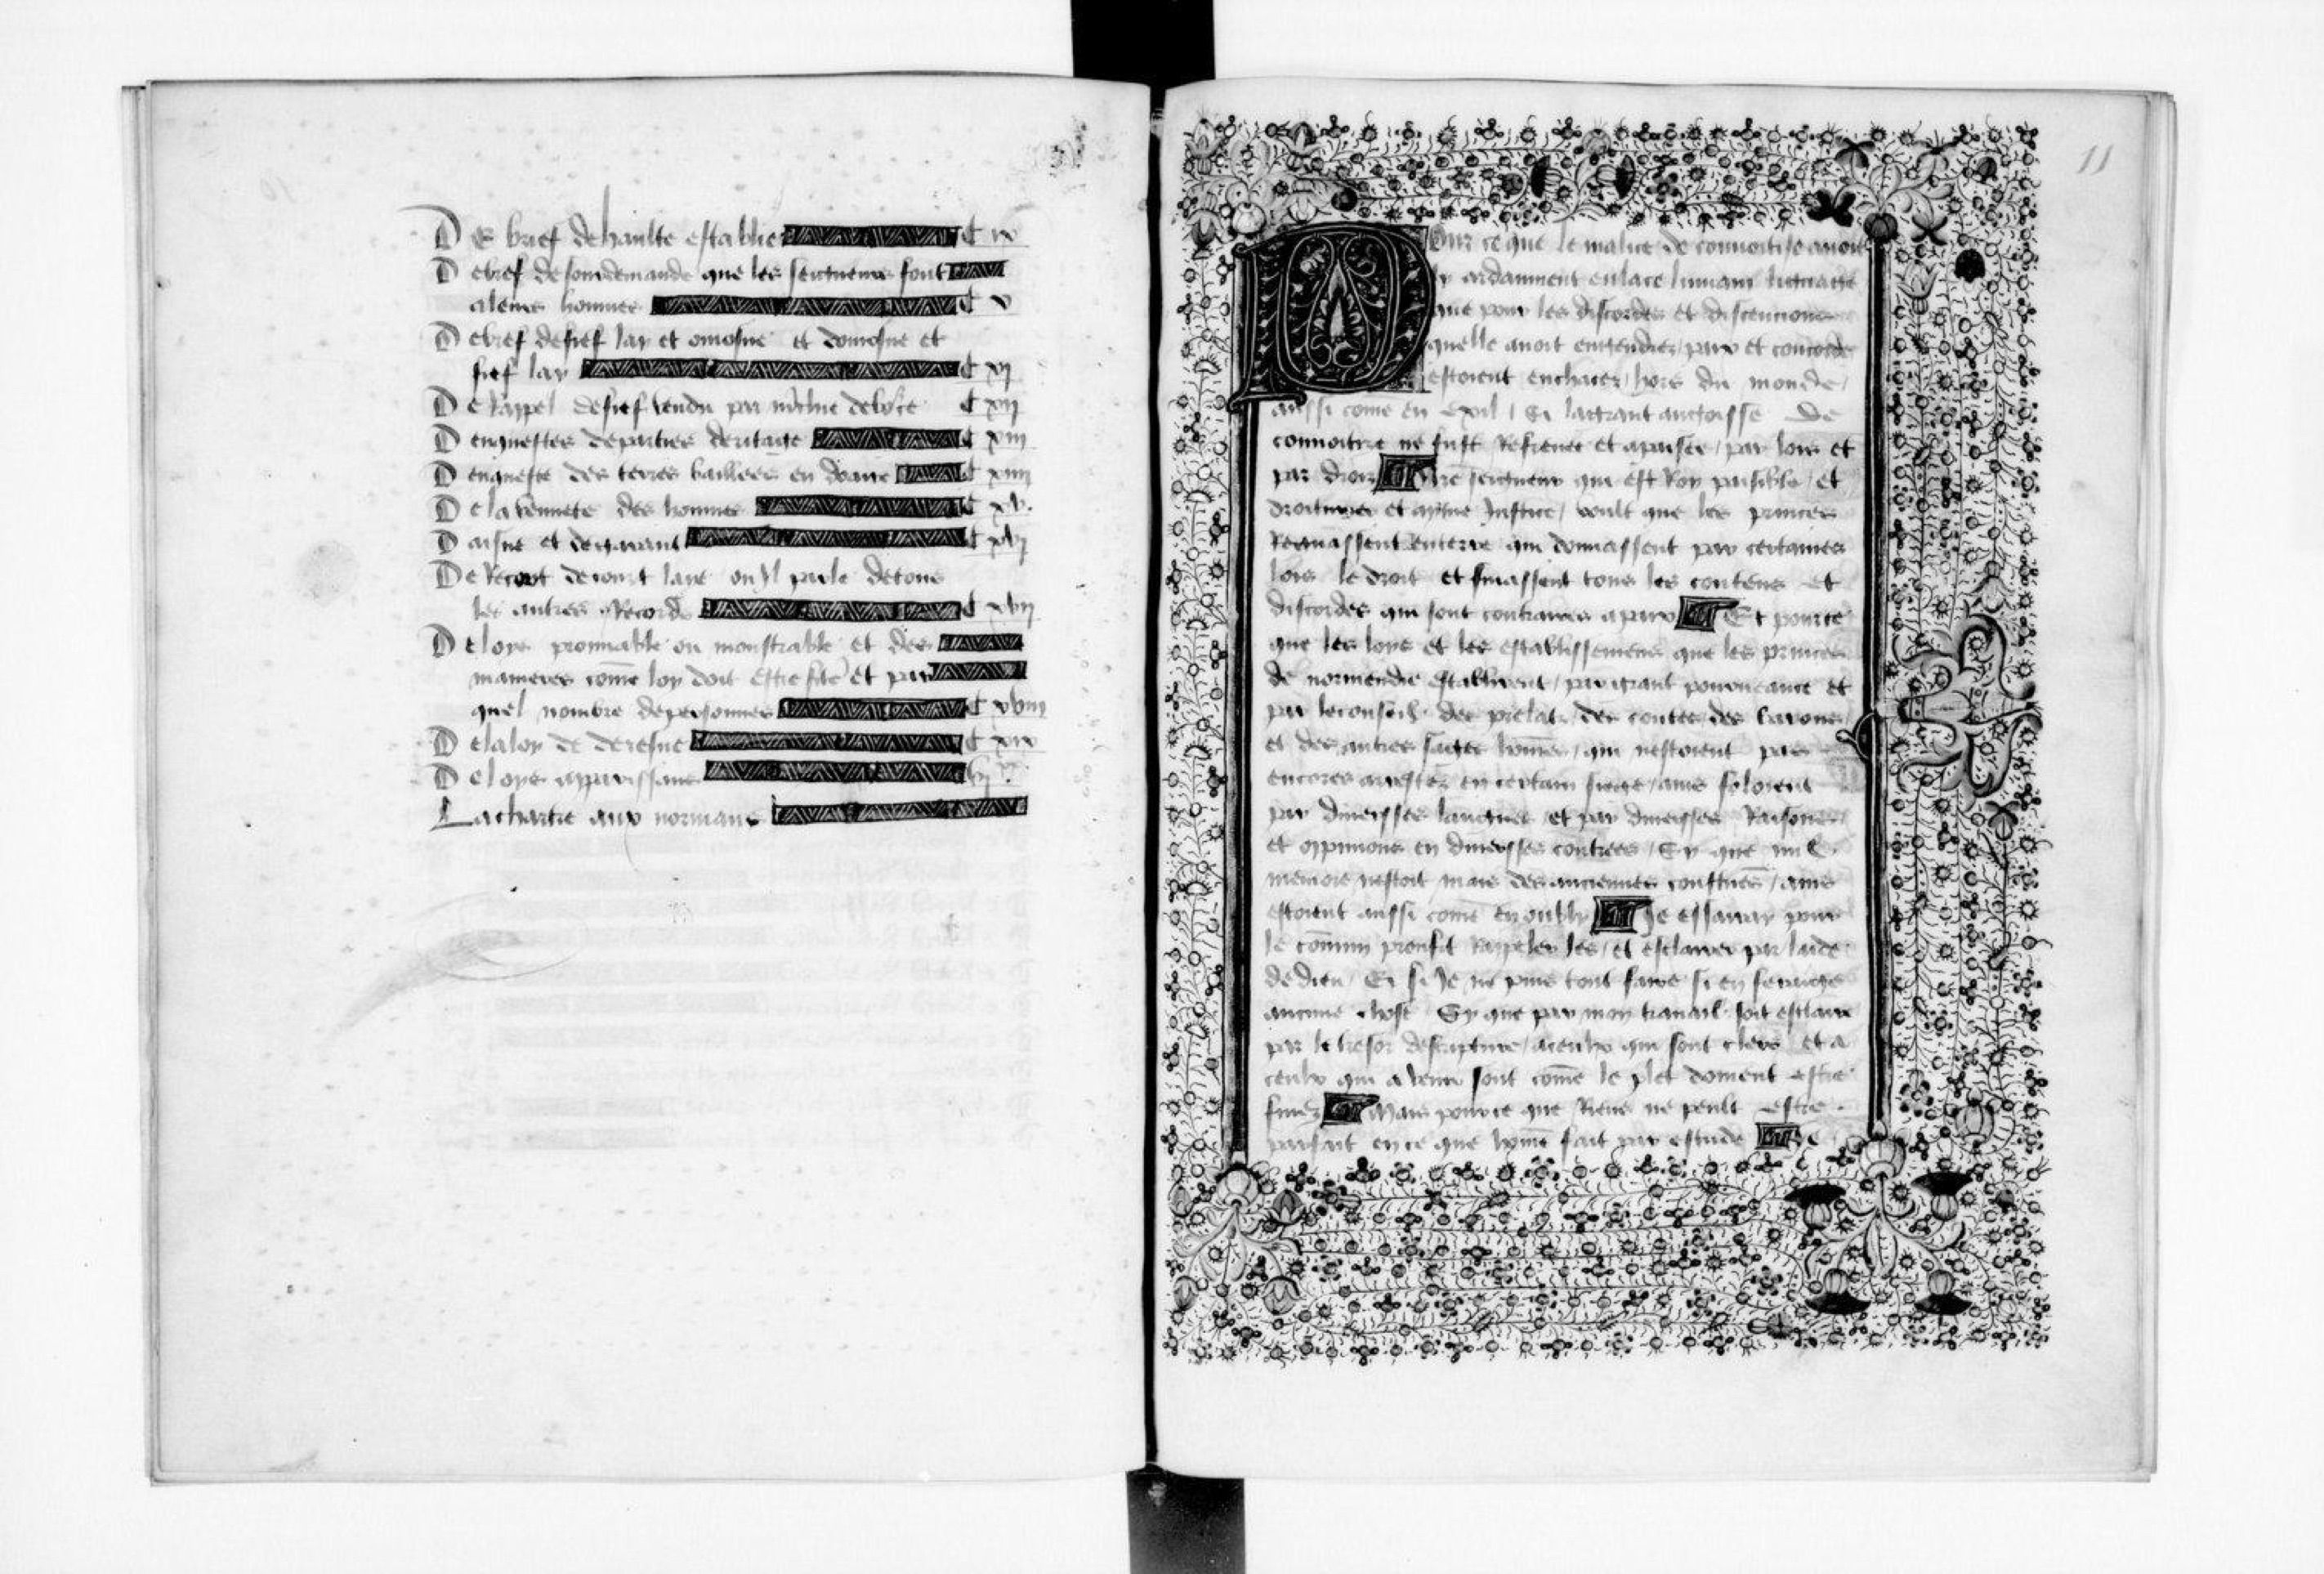 De brief de haulte establie C ix
De bref de sourdemande que les seigneurs font
a leurs hommes C v
De bref de fief lay et omosne et domosne et
fief lay C xj
De Rappel de fief vendu par C xij
Denquestes departies deritage C xiij
Denqueste des terres baillees en douaire C xiiij
De la des hommes C xv.
Daisne et de C xvj
De Recort de court laie ou Jl parle de tous
les autres Records C xvij
De loys prouuable ou monstrable et des
manieres com̄e loy doit estre fc̄te et par
quel nombre de personnes C xviij
De la loy de deresne C xix
De loys apparissans vj xx
La chartre aux normans
11
Pour ce que le malice de conuoitise auoit
sy ardanment enlace lumain lignage
que pour les discordes et discencions
quelle auoit engendrez, paix et concorde
estoient enchacez, hors du monde,
aussi come en exil, Et se de
conuoitise ne fust Refrenee et apaisee, par lois et
par droiz Nr̄e seigneur qui est Roy paisible, et
droiturier et ayme Justice, voult que les princes
Regnassent en terre qui donnassent par certaines
lois le droit et finassent tous les contens et
discordes qui sont contraires a paix Et pour ce
que les loys et les establissemens que les princes
de normendie establirent, par grant pourueance et
par le conseil des prelatz, des contes, des barons,
et des autres sages hom̄es, qui nestoient pas
encores arrestez en certain siege, ains
par diuersses langues, et par diuersses Raisons,
et oppinions en diuersses contrees, Sy que nul
memoire nestoit mais des anciennes constues, ains
estoient aussi com̄e en oubly Je essaray pour
le com̄un proufit Rappeler les, et esclairer par laide
de dieu, Et se Je ne puis tout faire si en
aucune chose Sy que par mon trauail soit esclaire
par le tresor descripture, a ceulx qui sont clers et a
ceulx qui a venir sont com̄e le plet doiuent estre
finez Mais pour ce que Riens ne peult estre
parfait en ce que hom̄e fait par estude Je